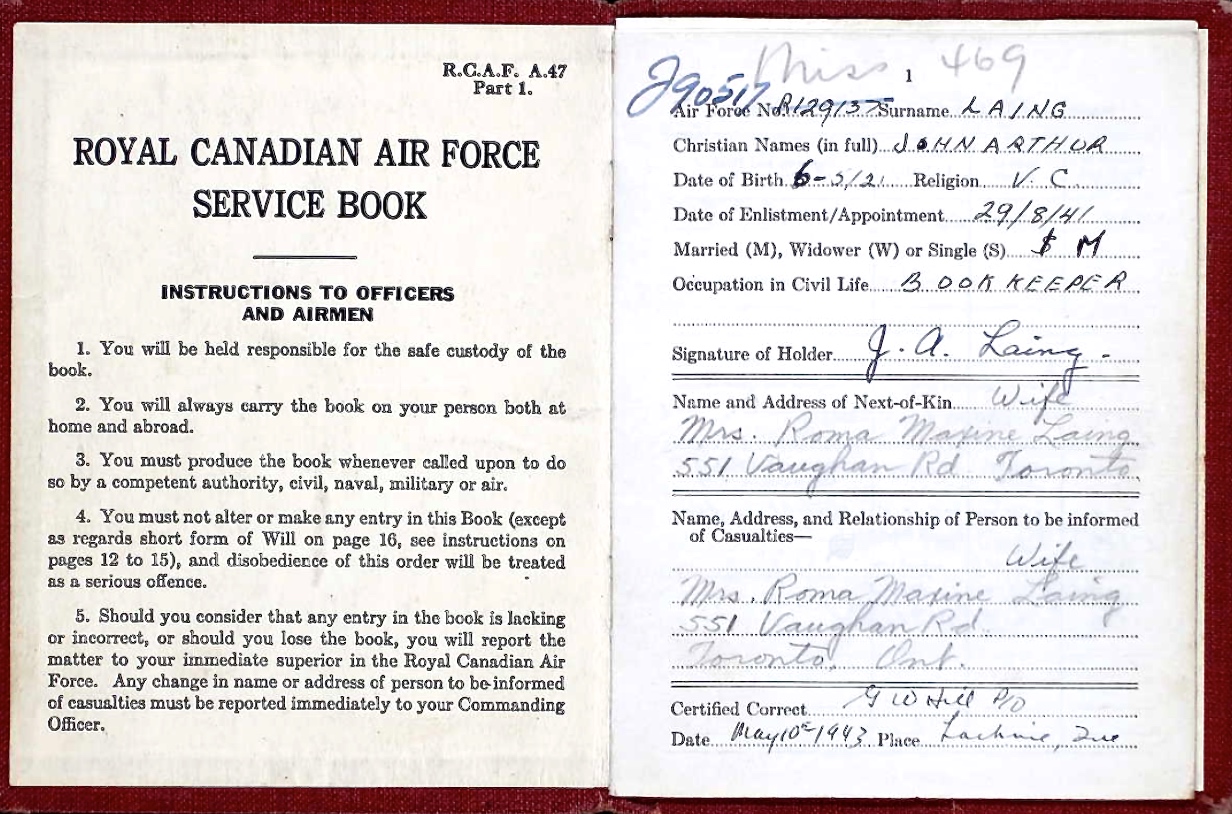 R.C.A.F. A.47
Part 1.
ROYAL CANADIAN AIR FORCE
SERVICE BOOK
INSTRUCTIONS TO OFFICERS
AND AIRMEN
1. You will be held responsible for the safe custody of the
book.
2. You will always carry the book on your person both at
home and abroad.
3. You must produce the book whenever called upon to do
so by a competent authority, civil, naval, military or air.
4. You must not alter or make any entry in this Book (except
as regards short form of Will on page 16, see instructions on
pages 12 to 15), and disobedience of this order will be treated
as a serious offence.
5. Should you consider that any entry in the book is lacking
or incorrect, or should you lose the book, you will report the
matter to your immediate superior in the Royal Canadian Air
Force. Any change in name or address of person to be informed
of casualties must be reported immediately to your Commanding
Officer.
Miss 469
1
J90517
Air Force No. R129137 Surname LAING
Christian Names (in full) JOHN ARTHUR
Date of Birth 6-5/21 Religion V. C.
Date of Enlistment/Appointment 29/8/41
Married (M), Widower (W) or Single (S) M
Occupation in Civil Life BOOKKEEPER
Signature of Holder J. A. Laing
Name and Address of Next-of-Kin Wife
Mrs. Roma Maxine Laing
551 Vaughan Rd Toronto
Name, Address, and Relationship of Person to be informed
of Casualties—
Wife
Mrs. Roma Maxine Laing
551 Vaughan Rd.
Toronto, Ont.
Certified Correct G W Hill P/O
Date May 10 1943 Place Lachine, Que